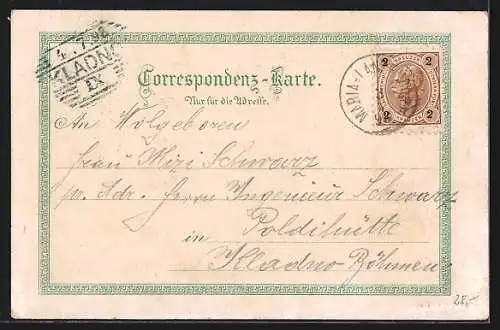 4. 7. 98
KLADNO
IX
Correspondenz-Karte.
Nur für die Adresse.
MARIA-
2 2
2 2
An Wolgeboren
Frau Mizi Schwarz
pr. Adr. Herrn Ingenieur Schwarz
Poldihütte
in
Kladno-Böhmen
28,-